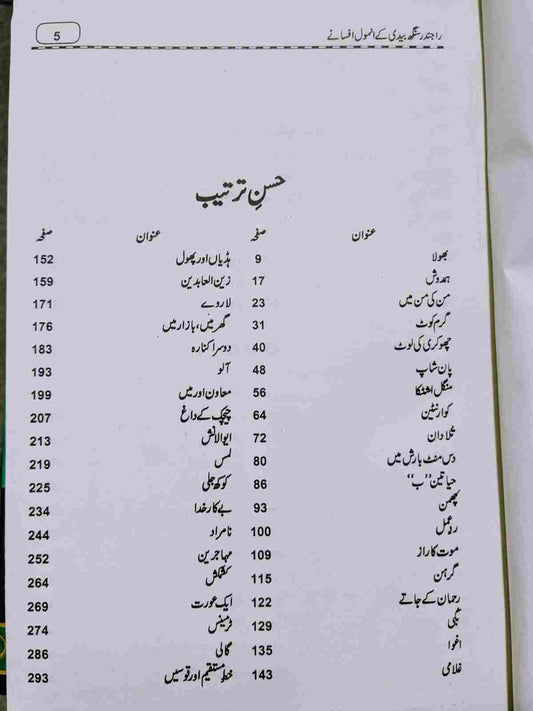 راجندر سنگھ بیدی کے انمول افسانے 5
حسنِ ترتیب
عنوان صفحہ عنوان صفحہ
بھولا 9 ہڈیاں اور پھول 152
ہمدوش 17 زین العابدین 159
من کی من میں 23 لاروے 171
گرم کوٹ 31 گھر میں، بازار میں 176
چھوکری کی لوٹ 40 دوسرا کنارہ 183
پان شاپ 48 آلو 193
منگل اشٹکا 56 معاون اور میں 199
کوارنٹین 64 چیچک کے داغ 207
تلادان 72 ایوالانش 213
دس منٹ بارش میں 80 لمس 219
حیاتین "ب" 86 کوکھ جلی 225
لچھمن 93 بے کار خدا 234
ردِ عمل 100 نامراد 244
موت کا راز 109 مہاجرین 252
گرہن 115 کشمکش 264
رحمان کے جوتے 122 ایک عورت 269
بکی 129 ٹرمینس 274
اغوا 135 گالی 286
غلامی 143 خطِ مستقیم اور قوسیں 293